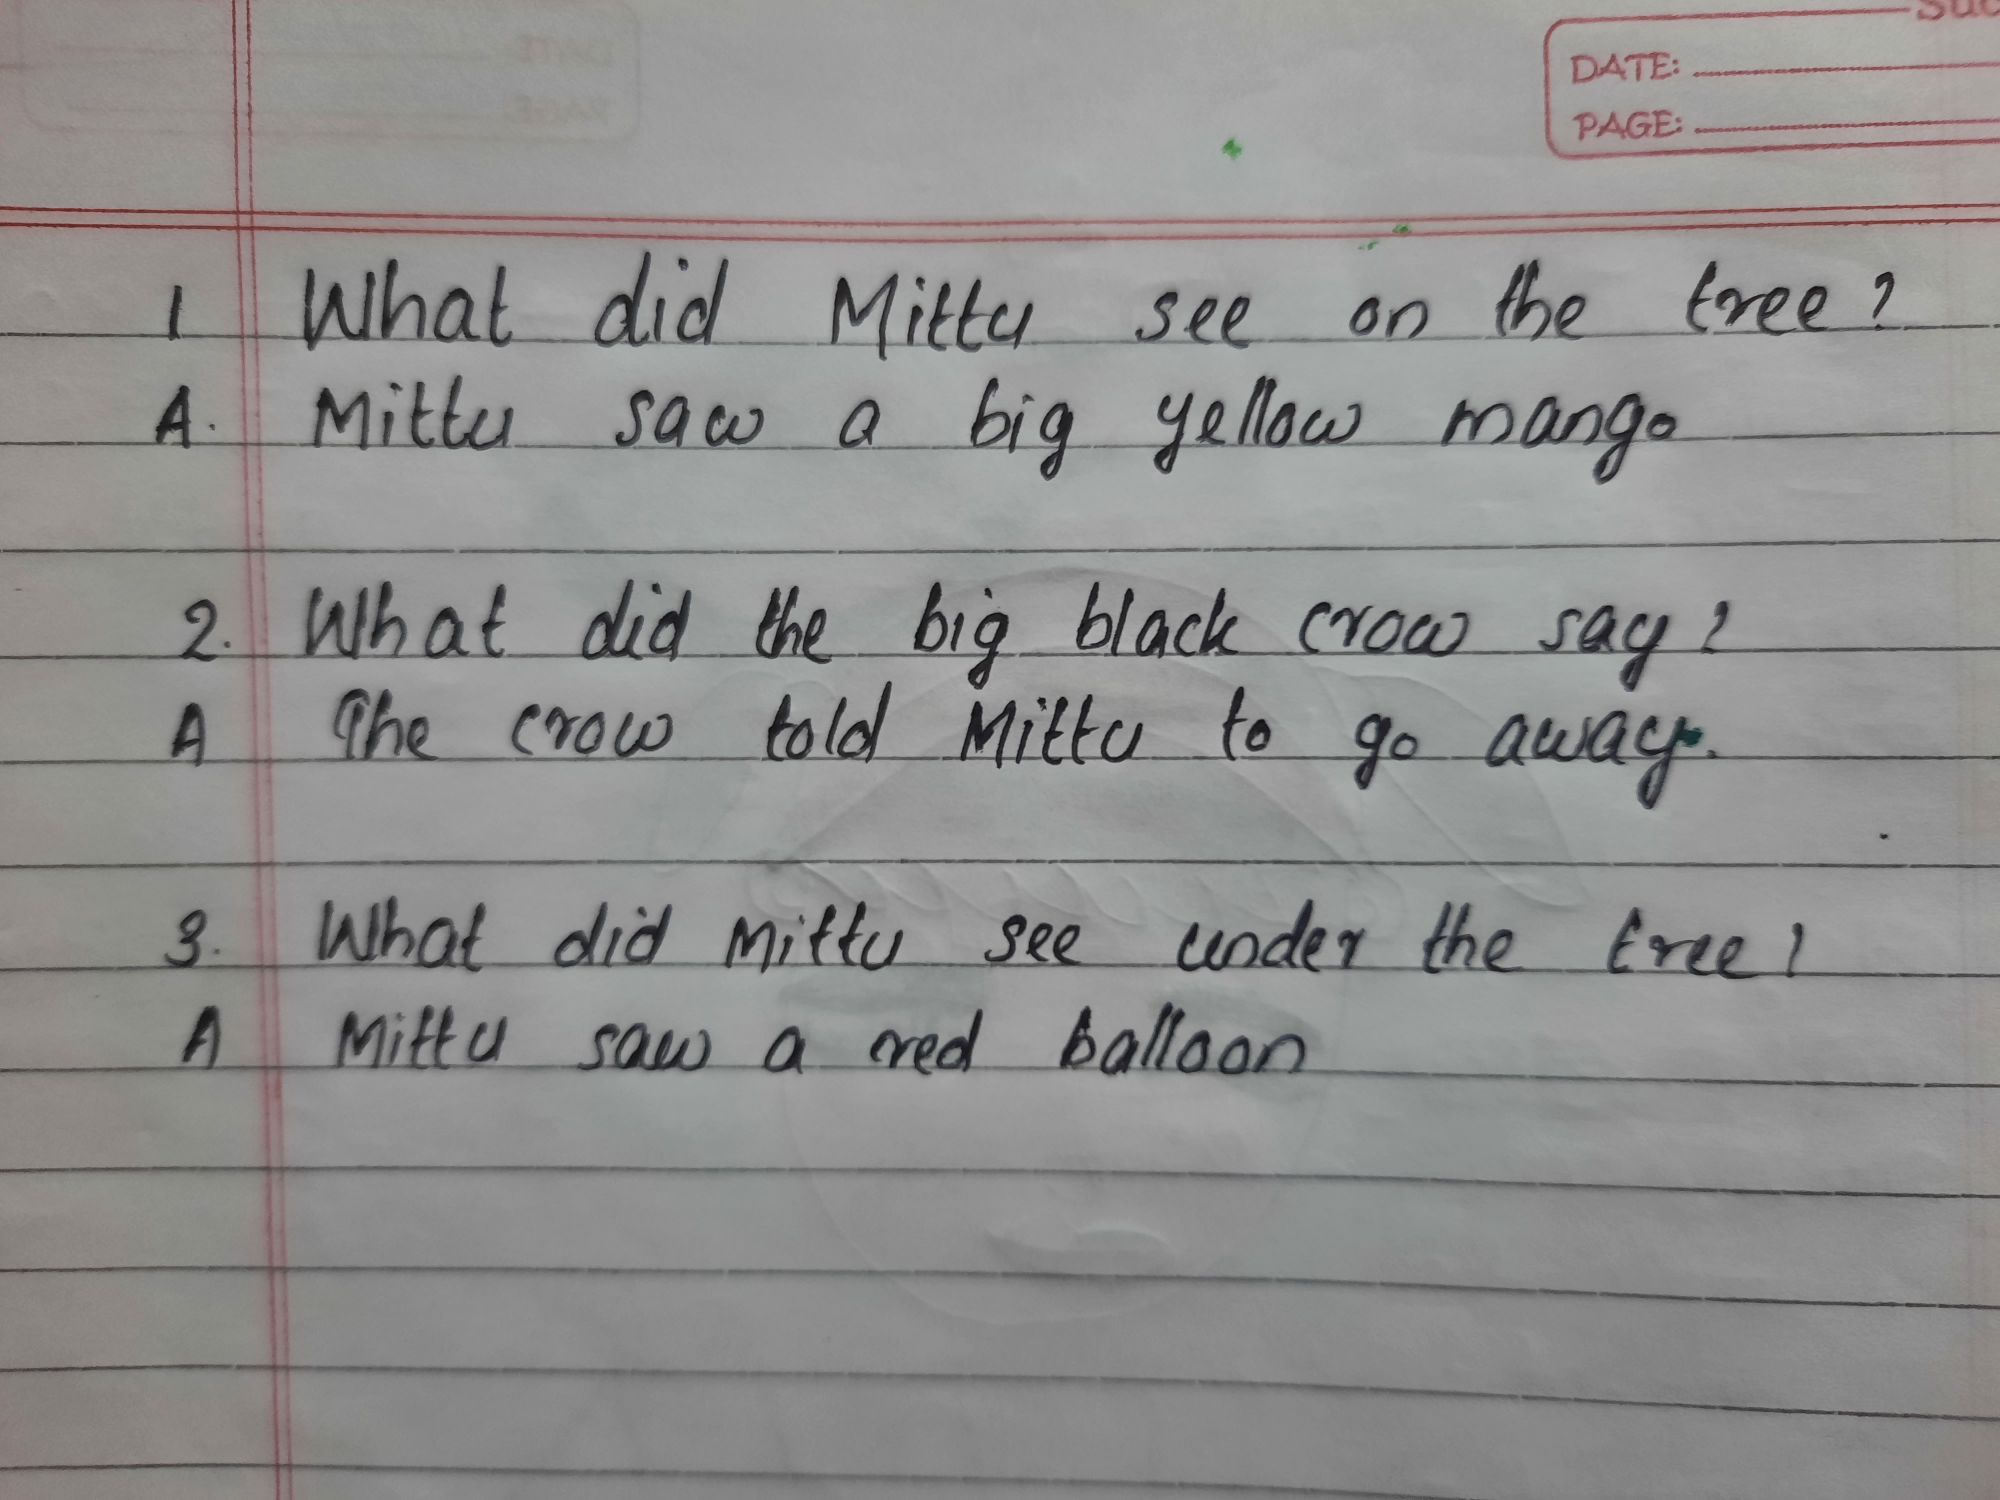 DATE:
PAGE:
1 What did Mittu see on the tree?
A. Mittu saw a big yellow mango
2. What did the big black crow say?
A The crow told Mittu to go away.
3. What did Mittu see under the tree?
A Mittu saw a red balloon